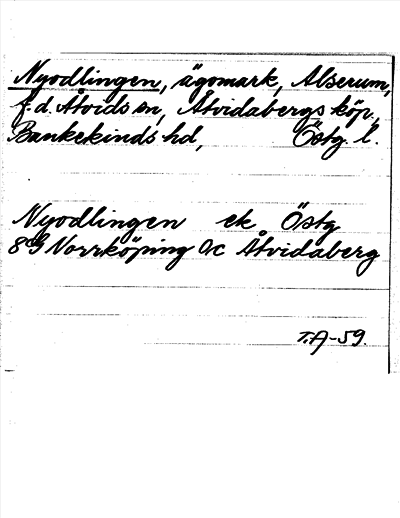 Nyodlingen, ägomark, Alserum,
f.d. Åtvids sn, Åtvidabergs köp.,
Bankekinds hd, Östg. l.
Nyodlingen ek Östg
8G Norrköping 0c Åtvidaberg
T.A-59.